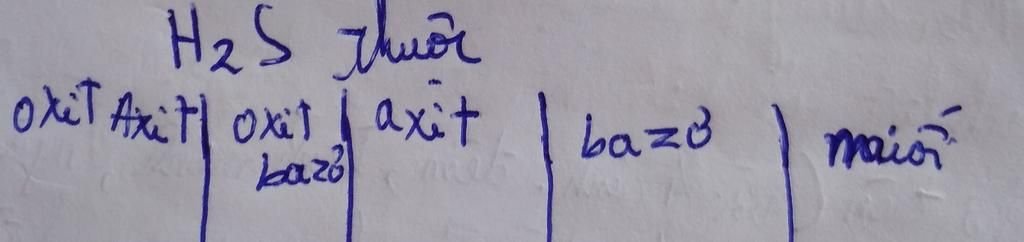 H2S thuộc
oxit Axit | oxit bazơ | axit | bazơ | muối